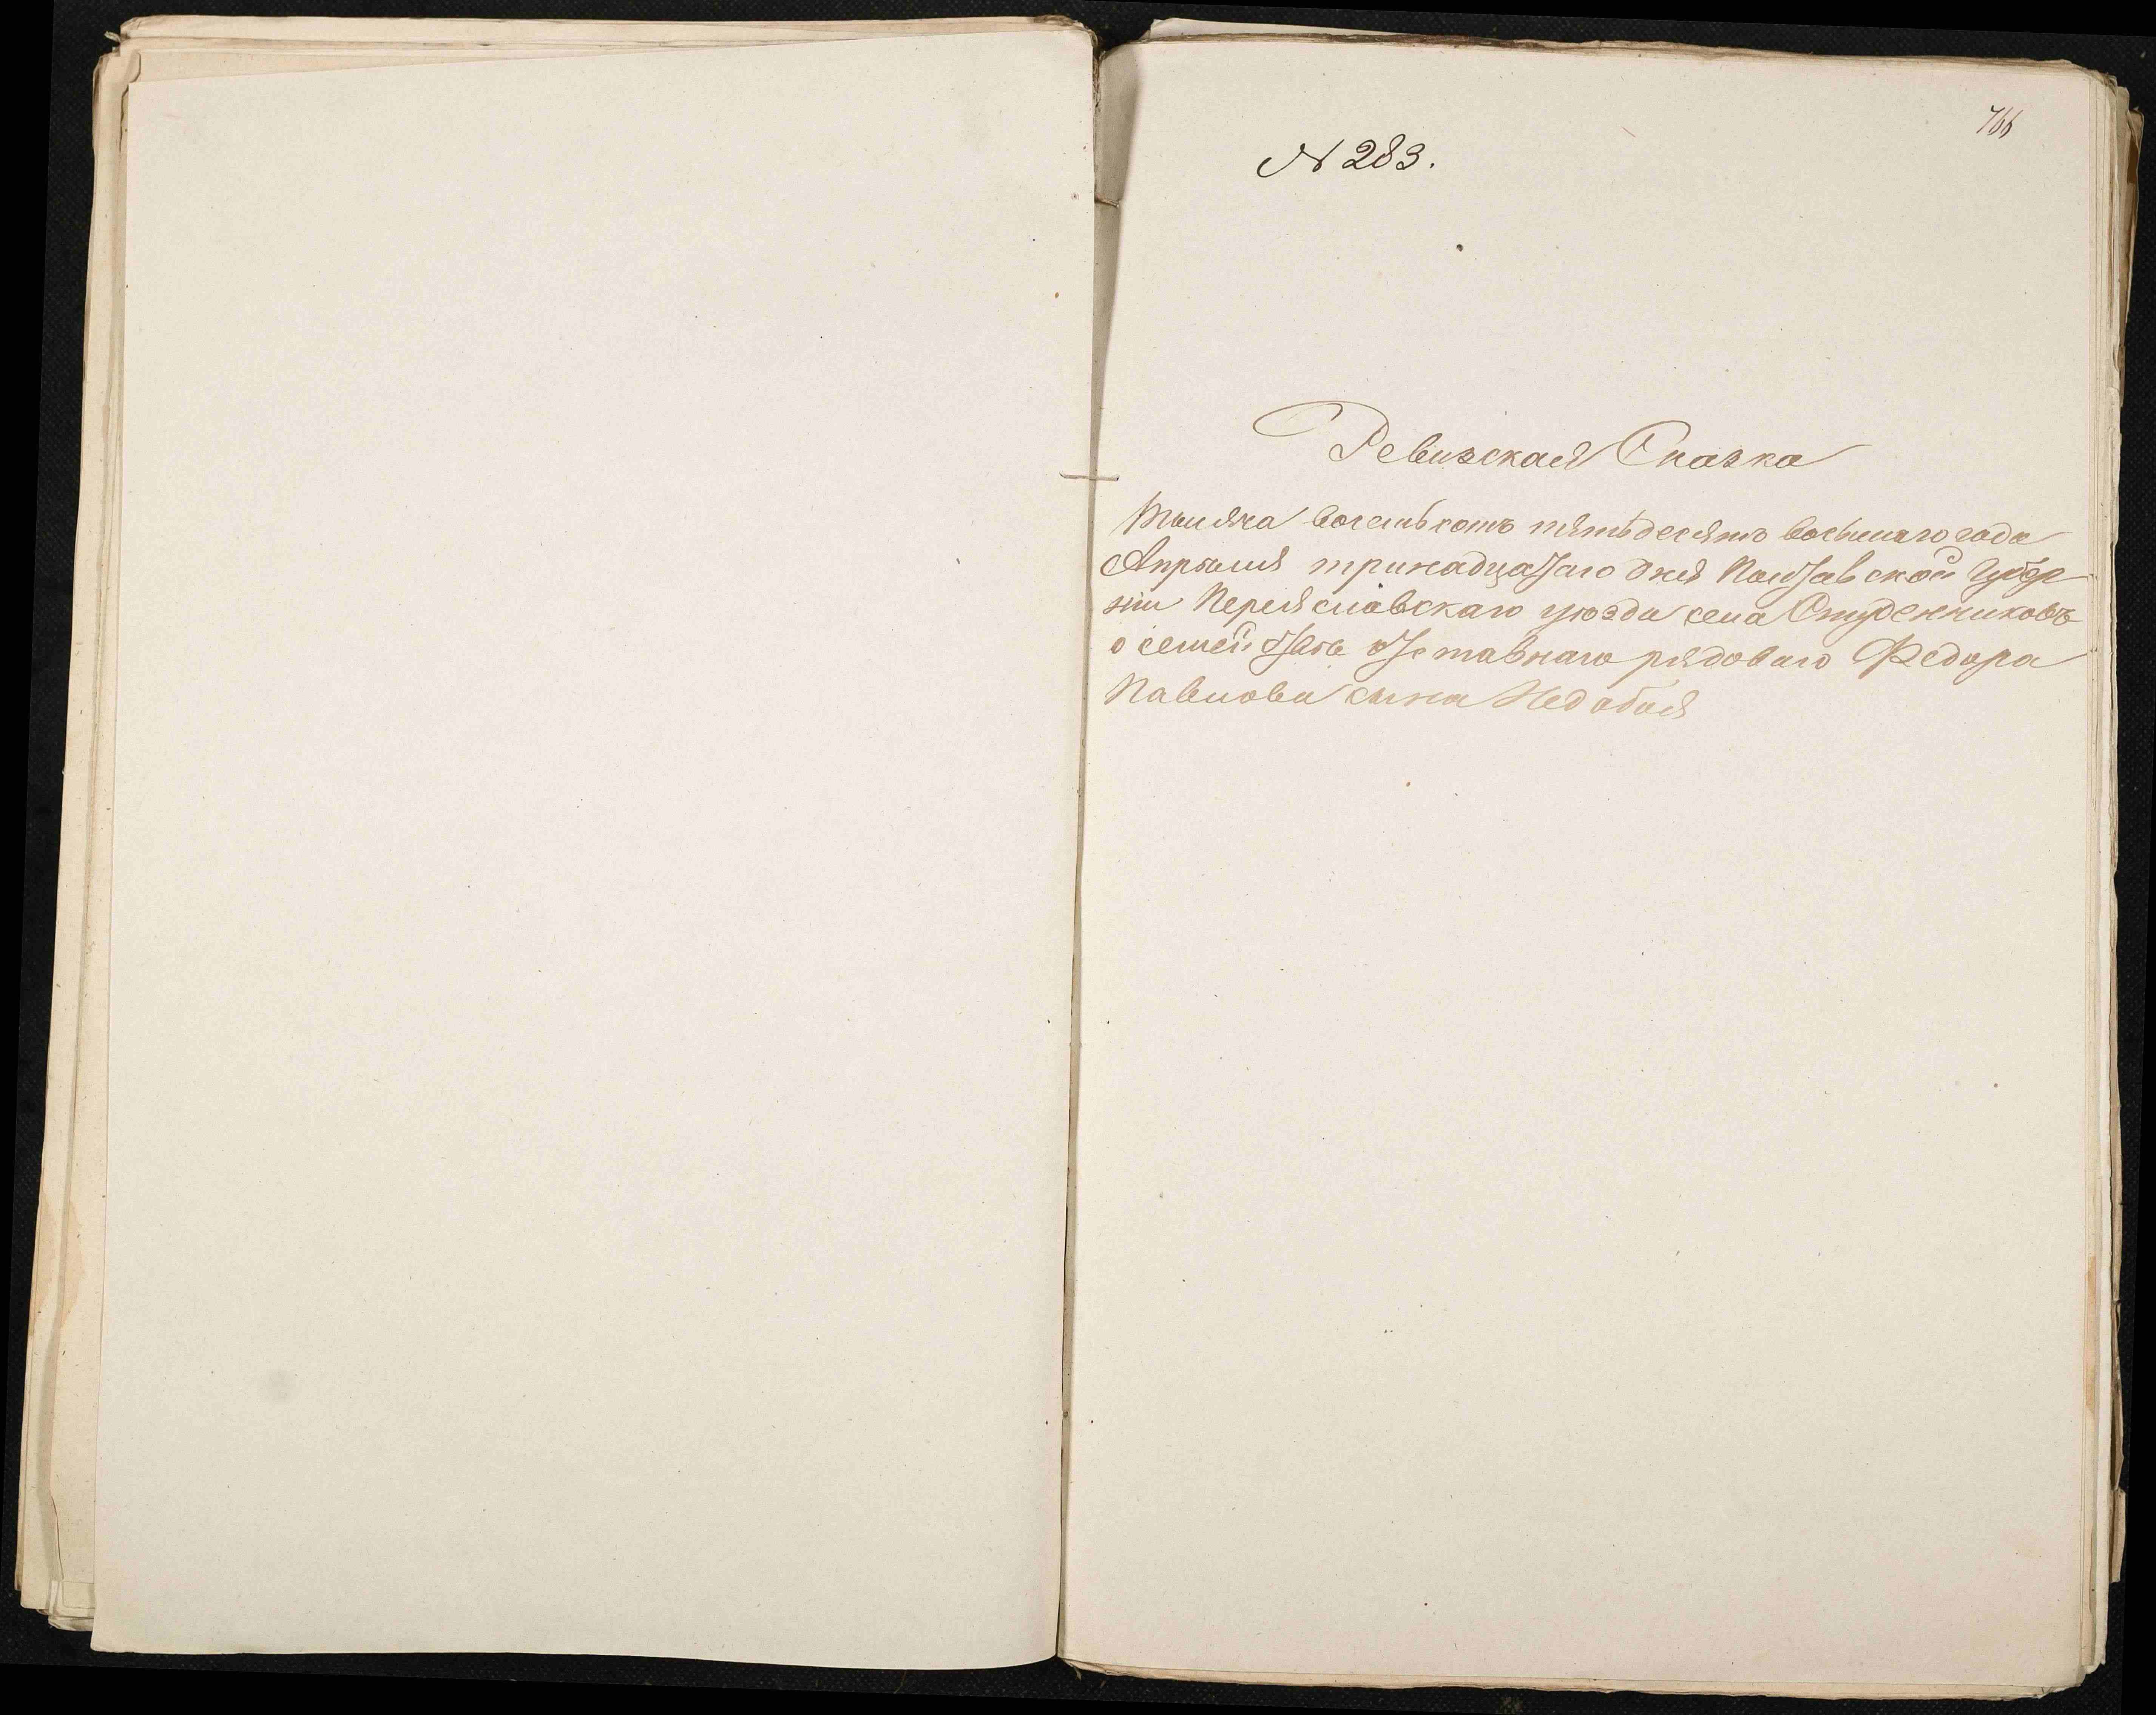 766
N 283.
Ревизская Сказка
Тысяча восемьсотъ пятьдесятъ восьмаго года
Апрѣля тринадцатаго дня Полтавской Губер
ніи Переяславскаго уѣзда села Студенниковъ
о семействѣ отставнаго рядоваго Федора
Павлова сына Недобоя